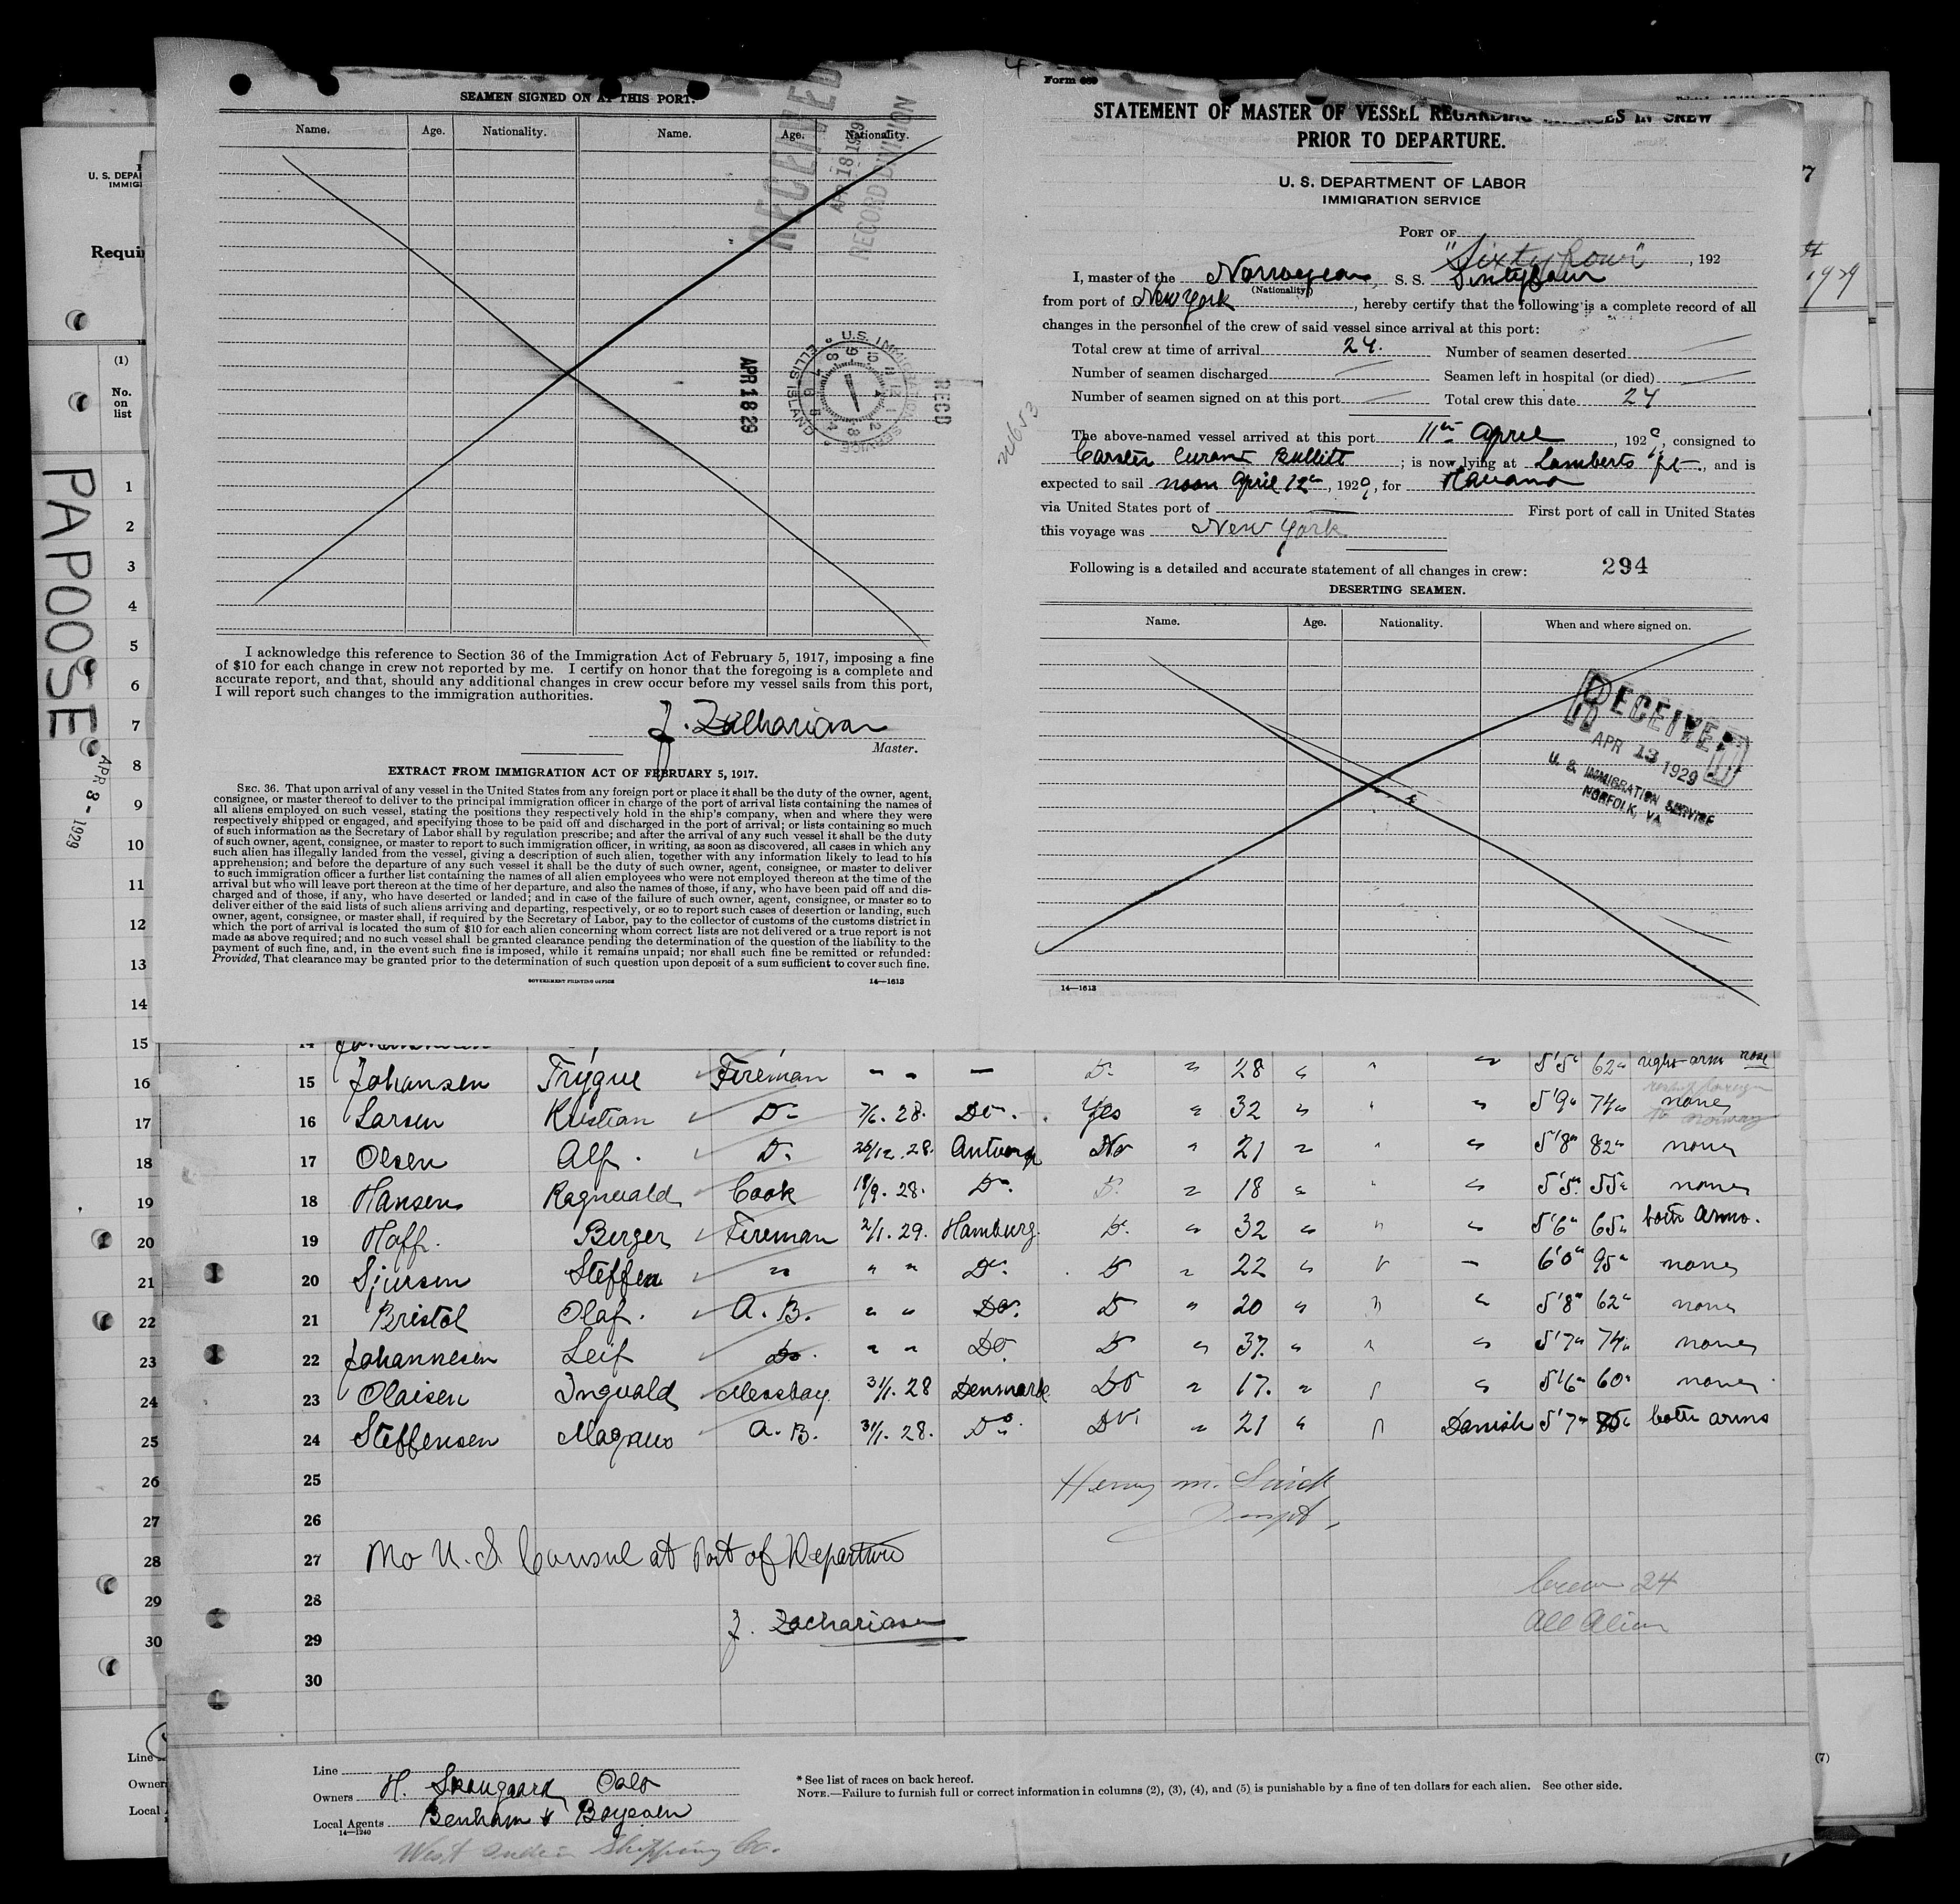 SEAMEN SIGNED ON AT THIS PORT.
Name. Age. Nationality. Name. Age. Nationality.
RECEIVED
APR 18 1929
RECORD DIVISION
APR 18 29
U.S. IMMIGRATION SERVICE
ELLIS ISLAND
RECD
I acknowledge this reference to Section 36 of the Immigration Act of February 5, 1917, imposing a fine
of $10 for each change in crew not reported by me. I certify on honor that the foregoing is a complete and
accurate report, and that, should any additional changes in crew occur before my vessel sails from this port,
I will report such changes to the immigration authorities.
Z. Zachariasen
Master.
EXTRACT FROM IMMIGRATION ACT OF FEBRUARY 5, 1917.
SEC. 36. That upon arrival of any vessel in the United States from any foreign port or place it shall be the duty of the owner, agent,
consignee, or master thereof to deliver to the principal immigration officer in charge of the port of arrival lists containing the names of
all aliens employed on such vessel, stating the positions they respectively hold in the ship's company, when and where they were
respectively shipped or engaged, and specifying those to be paid off and discharged in the port of arrival; or lists containing so much
of such information as the Secretary of Labor shall by regulation prescribe; and after the arrival of any such vessel it shall be the duty
of such owner, agent, consignee, or master to report to such immigration officer, in writing, as soon as discovered, all cases in which any
such alien has illegally landed from the vessel, giving a description of such alien, together with any information likely to lead to his
apprehension; and before the departure of any such vessel it shall be the duty of such owner, agent, consignee, or master to deliver
to such immigration officer a further list containing the names of all alien employees who were not employed thereon at the time of the
arrival but who will leave port thereon at the time of her departure, and also the names of those, if any, who have been paid off and dis-
charged and of those, if any, who have deserted or landed; and in case of the failure of such owner, agent, consignee, or master so to
deliver either of the said lists of such aliens arriving and departing, respectively, or so to report such cases of desertion or landing, such
owner, agent, consignee, or master shall, if required by the Secretary of Labor, pay to the collector of customs of the customs district in
which the port of arrival is located the sum of $10 for each alien concerning whom correct lists are not delivered or a true report is not
made as above required; and no such vessel shall be granted clearance pending the determination of the question of the liability to the
payment of such fine, and, in the event such fine is imposed, while it remains unpaid; nor shall such fine be remitted or refunded:
Provided, That clearance may be granted prior to the determination of such question upon deposit of a sum sufficient to cover such fine.
GOVERNMENT PRINTING OFFICE 14—1613
Form 689
STATEMENT OF MASTER OF VESSEL REGARDING CHANGES IN CREW
PRIOR TO DEPARTURE.
U. S. DEPARTMENT OF LABOR
IMMIGRATION SERVICE
PORT OF
"Sixtyfour" , 192
I, master of the Norwegian, S. S. Sixtyfour
(Nationality)
from port of New York, hereby certify that the following is a complete record of all
changes in the personnel of the crew of said vessel since arrival at this port:
Total crew at time of arrival 24. Number of seamen deserted
Number of seamen discharged Seamen left in hospital (or died)
Number of seamen signed on at this port Total crew this date 24
The above-named vessel arrived at this port 11th April, 1929, consigned to
; is now lying at Lamberts pt., and is
expected to sail noon April 12th, 1929, for Havana
via United States port of First port of call in United States
this voyage was New York
Following is a detailed and accurate statement of all changes in crew: 294
DESERTING SEAMEN.
Name. Age. Nationality. When and where signed on.
RECEIVED
APR 13 1929
U. S. IMMIGRATION SERVICE
NORFOLK, VA
14—1613
U. S. DEPA
IMMIG
Requi
(1)
No.
on
list
PAPOOSE
APR 8 - 1929
1
2
3
4
5
6
7
8
9
10
11
12
13
14
15
16
17
18
19
20
21
22
23
24
25
26
27
28
29
30
14
15 Johansen Trygve Fireman - - - D. " 28 " " " 5'5" 62" right arm none
16 Larsen Kristian Do 7/6. 28. Do. Yes " 32 " " " 5'9" 74" none
17 Olsen Alf. Do 28. Antwerp No " 21 " " " 5'8" 82" none
18 Hansen Ragnvald Cook 18/9. 28. Do. D. " 18 " " " 5'5" 55" none
19 Hoff. Berger Fireman 2/1. 29. Hamburg. D. " 32 " " " 5'6" 65" both arms.
20 Sjursen Steffen " " " Do. Do " 22 " " " 6'0" 95" none
21 Bristol Olaf. A. B. " " Do. Do " 20 " " " 5'8" 62" none
22 Johannesen Leif Do. " " Do Do " 37. " " " 5'7" 74" none
23 Olaisen Ingvald Messboy 31/1. 28 Denmark Do " 17. " " " 5'6" 60" none
24 Steffensen Magnus A. B. 31/1. 28. Do Do " 21 " " Danish 5'7" both arms
25
26
27 No U. S Consul at Port of Departure
28
29 Z. Zachariasen
30
Henry M.
Crew 24
All Alien
Line
Owners H. Skougaard Oslo
Local Agents Benham & Boyesen
14—1240
West India Shipping Co.
* See list of races on back hereof.
NOTE.—Failure to furnish full or correct information in columns (2), (3), (4), and (5) is punishable by a fine of ten dollars for each alien. See other side.
Line
Owner
Local
(7)